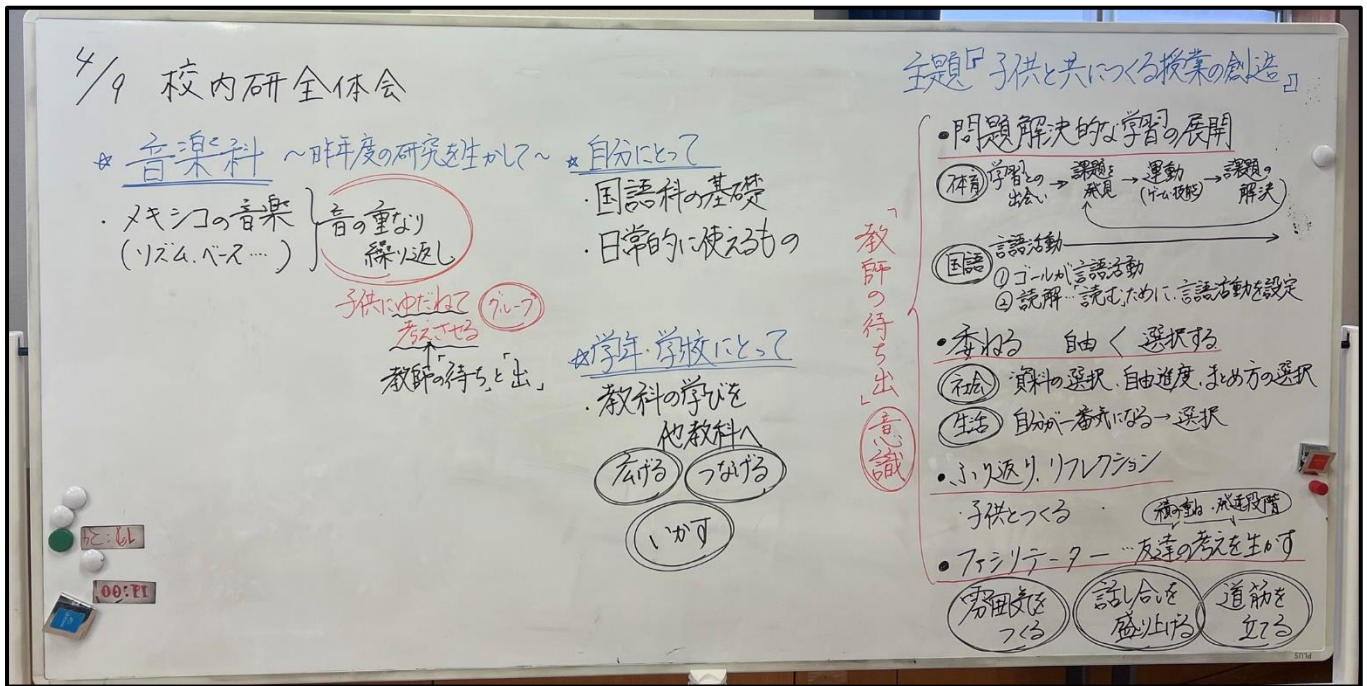 4/9 校内研全体会
☆ 音楽科 ～昨年度の研究を生かして～
・メキシコの音楽
(リズム、ベース…)
音の重なり
繰り返し
子供にゆだねて
考えさせる
グループ
教師の「待ち」と「出」
☆ 自分にとって
・国語科の基礎
・日常的に使えるもの
☆学年・学校にとって
・教科の学びを
他教科へ
広げる つなげる
いかす
主題『子供と共につくる授業の創造』
「教師の待ち出」意識
・問題解決的な学習の展開
体育 学習との出会い → 課題を発見 → 運動(ゲーム・技能) → 課題の解決
国語 言語活動
① ゴールが言語活動
② 読解…「読む」ために、言語活動を設定
・委ねる 自由 く 選択する
社会 資料の選択、自由進度、まとめ方の選択
生活 自分が一番気になる→選択
・ふり返り、リフレクション
・子供とつくる ・
積み重ね・発達段階
・ファシリテーター…友達の考えを生かす
雰囲気をつくる
話し合いを盛り上げる
道筋を立てる
PLUS